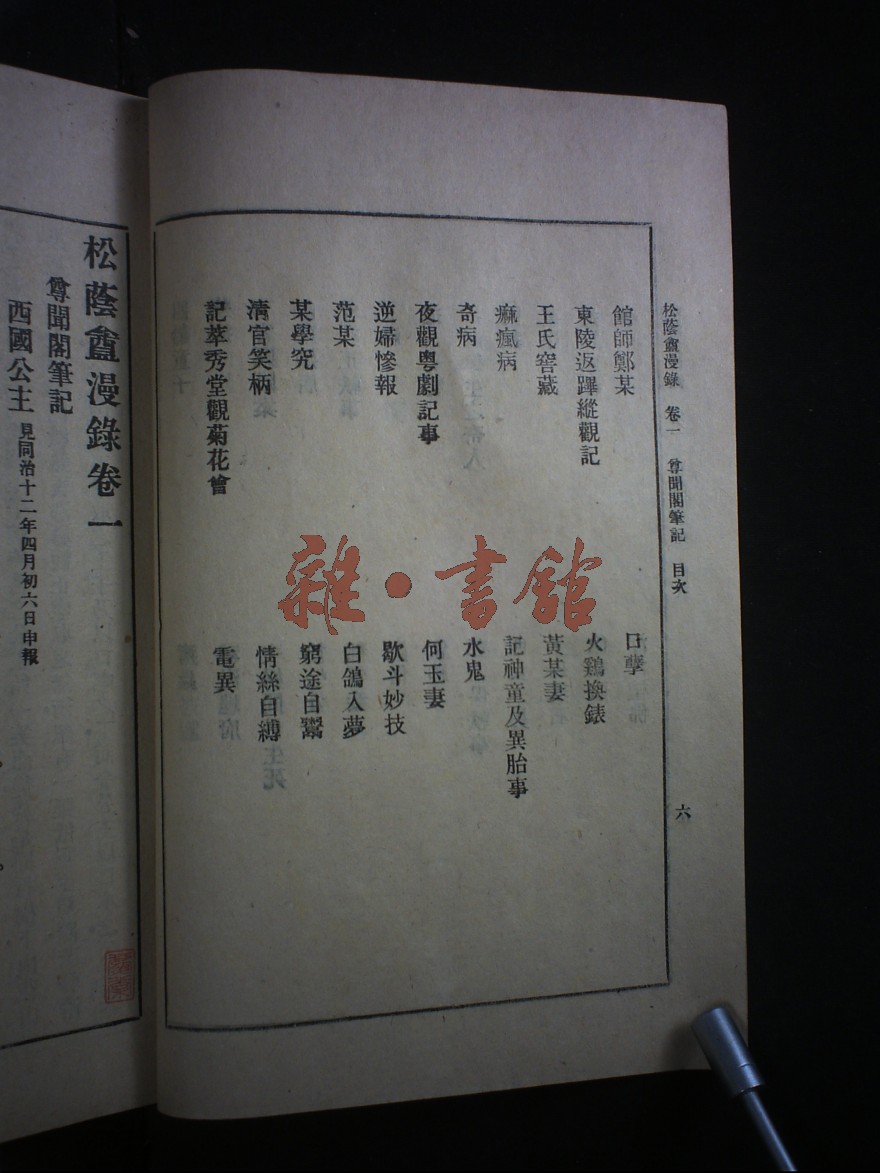 松蔭盦漫錄 卷一 尊聞閣筆記 目次 六
館師鄭某 口孽
東陵返蹕縱觀記 火鷄換錶
王氏窖藏 黃某妻
痲瘋病 記神童及異胎事
奇病 水鬼
夜觀粵劇記事 何玉妻
逆婦慘報 歇斗妙技
范某 白鴿入夢
某學究 窮途自鬻
清官笑柄 情絲自縛
記萃秀堂觀菊花會 電異
雜·書館
松蔭盦漫錄卷一
尊聞閣筆記
西國公主 見同治十二年四月初六日申報